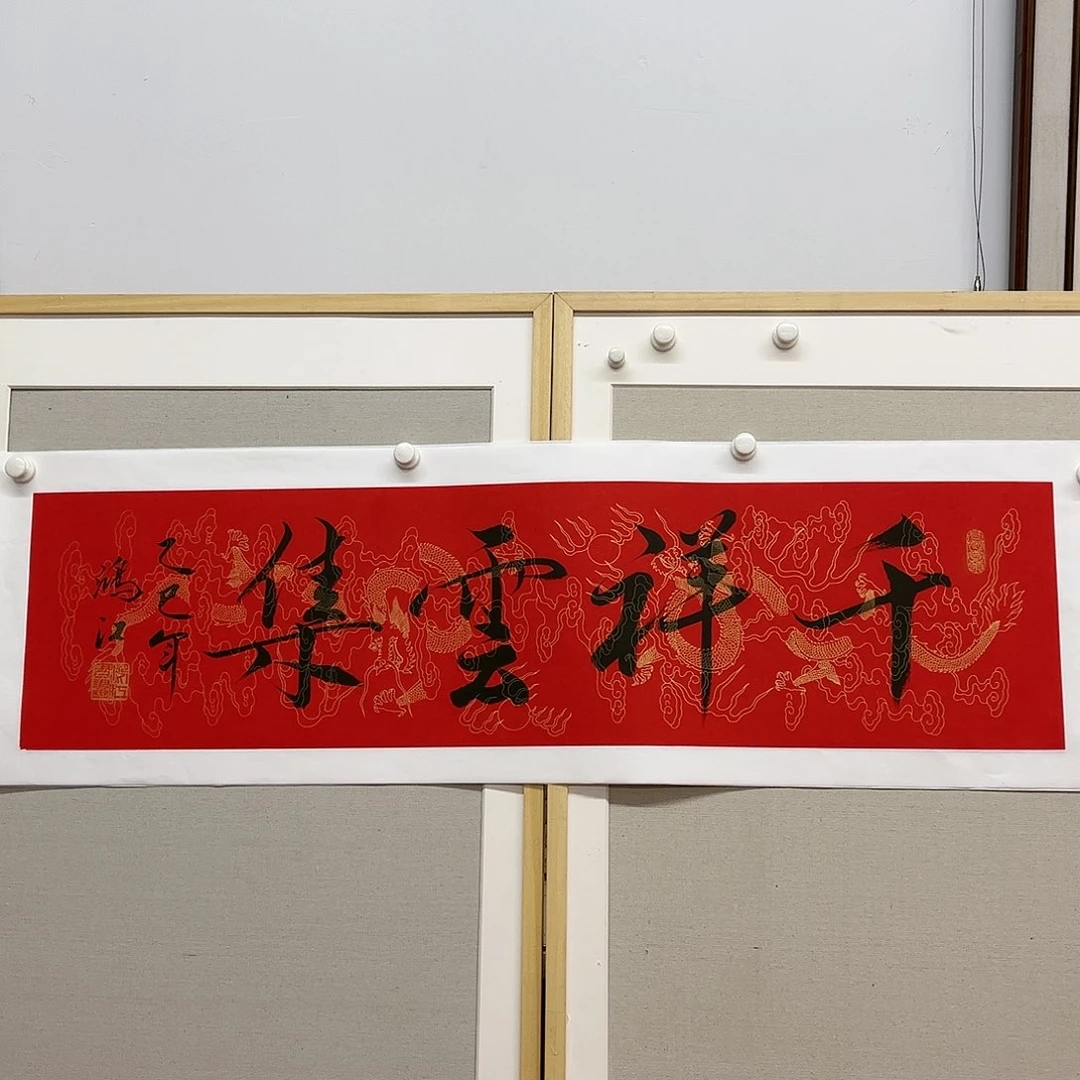 千祥雲集
乙巳年
鴻江